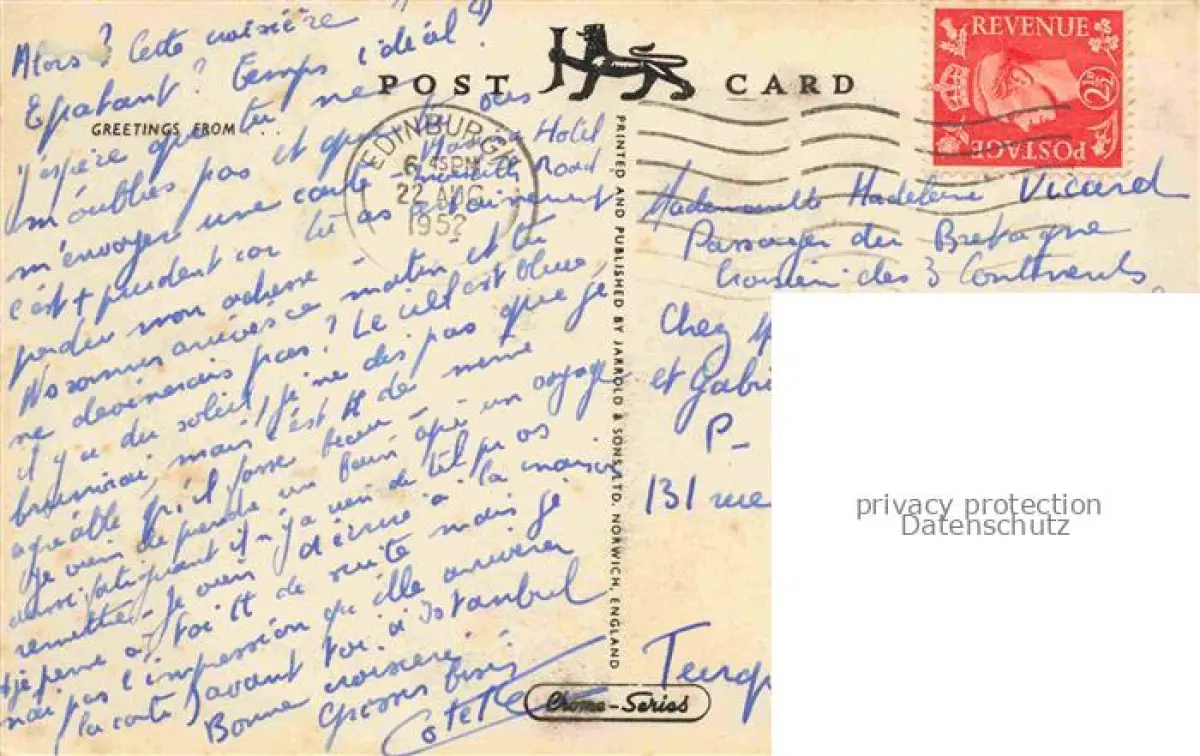 POST CARD
GREETINGS FROM ...
Alors? Cette croisière?
Epatant? Temps idéal?
J'espère que tu ne
m'oublies pas et que tu vas
m'envoyer une carte - Hotel
Road
c'est + prudent car tu as certainement
perdu mon adresse -
Ns sommes arrivés ce matin et tu
ne devinerais pas? Le ciel est bleu,
il y a du soleil, je ne dis pas que je
bronzerai, mais c'est tt de même
agréable qu'il fasse beau -
Je viens de prendre un bain, après un voyage
aussi fatiguant il n'y a rien de tel pr vs
remettre - Je viens d'écrire à la maison
+ je pense à toi tt de suite mais je
n'ai pas l'impression qu'elle arrivera
(la carte) avant toi à Istanbul
Bonne croisière
Grosses bises
EDINBURGH
6 PM
22 AUG
1952
PRINTED AND PUBLISHED BY JARROLD & SONS LTD. NORWICH, ENGLAND
Chrome-Series
REVENUE
2½D
POSTAGE
Mademoiselle Madeleine Vicard
Passager du Bretagne
Croisière des 3 Continents
Chez
et Gabri
P-
131 rue
Turq
privacy protection
Datenschutz